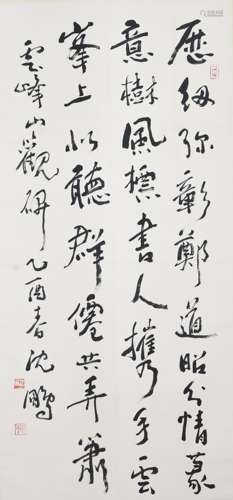 歷劫弥彰鄭道昭分情篆
意樹風標書人攜手雲
峯上似聽群僊共弄簫
雲峰山觀碑乙酉春沈鵬